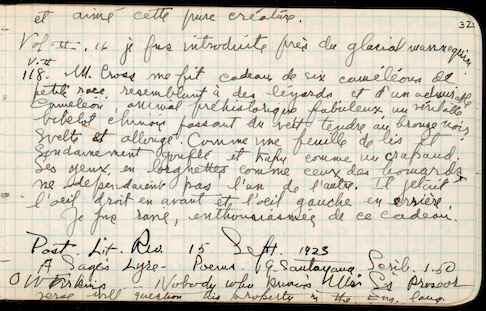 32
et aimé cette pure créature.
Vol II. 16 je fus introduite près du glacial mannequin
V. II
118. M. Cross me fit cadeau de six caméléons de
petite race, ressemblant à des lézards et d'un admirable
Caméléon, animal préhistorique fabuleux un véritable
bibelot chinois passant du vert tendre au bronze noir
svelte et allongé. Comme une feuille de lis et
soudainement gonflé et trapu comme un crapaud.
Ses yeux, en lorgnettes comme ceux des homards
ne dépendaient pas l'un de l'autre. Il jetait
l'oeil droit en avant et l'oeil gauche en arrière.
Je fus ravie, enthousiasmée de ce cadeau.
Post. Lit. Rev. 15 Sept. 1923
A Sage's Lyre - Poems G Santayana. Scrib. 1.50
O W Firkins. Nobody who knows Mr. S's prose or
verse will question his property in the Eng. lang.